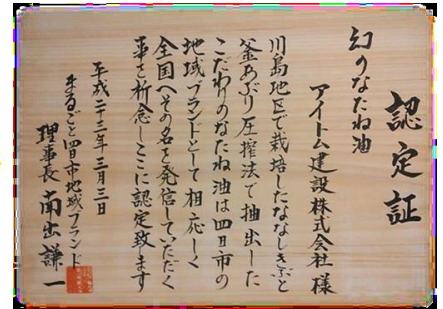 認定証
幻のなたね油
アイトム建設株式会社 様
川島地区で栽培したななしきぶと
釜あぶり圧搾法で抽出した
こだわりのなたね油は四日市の
地域ブランドとして相応しく
全国へその名を発信していただく
事を祈念しここに認定致します
平成二十三年三月三日
まるごと四日市地域ブランド
理事長 南出謙一